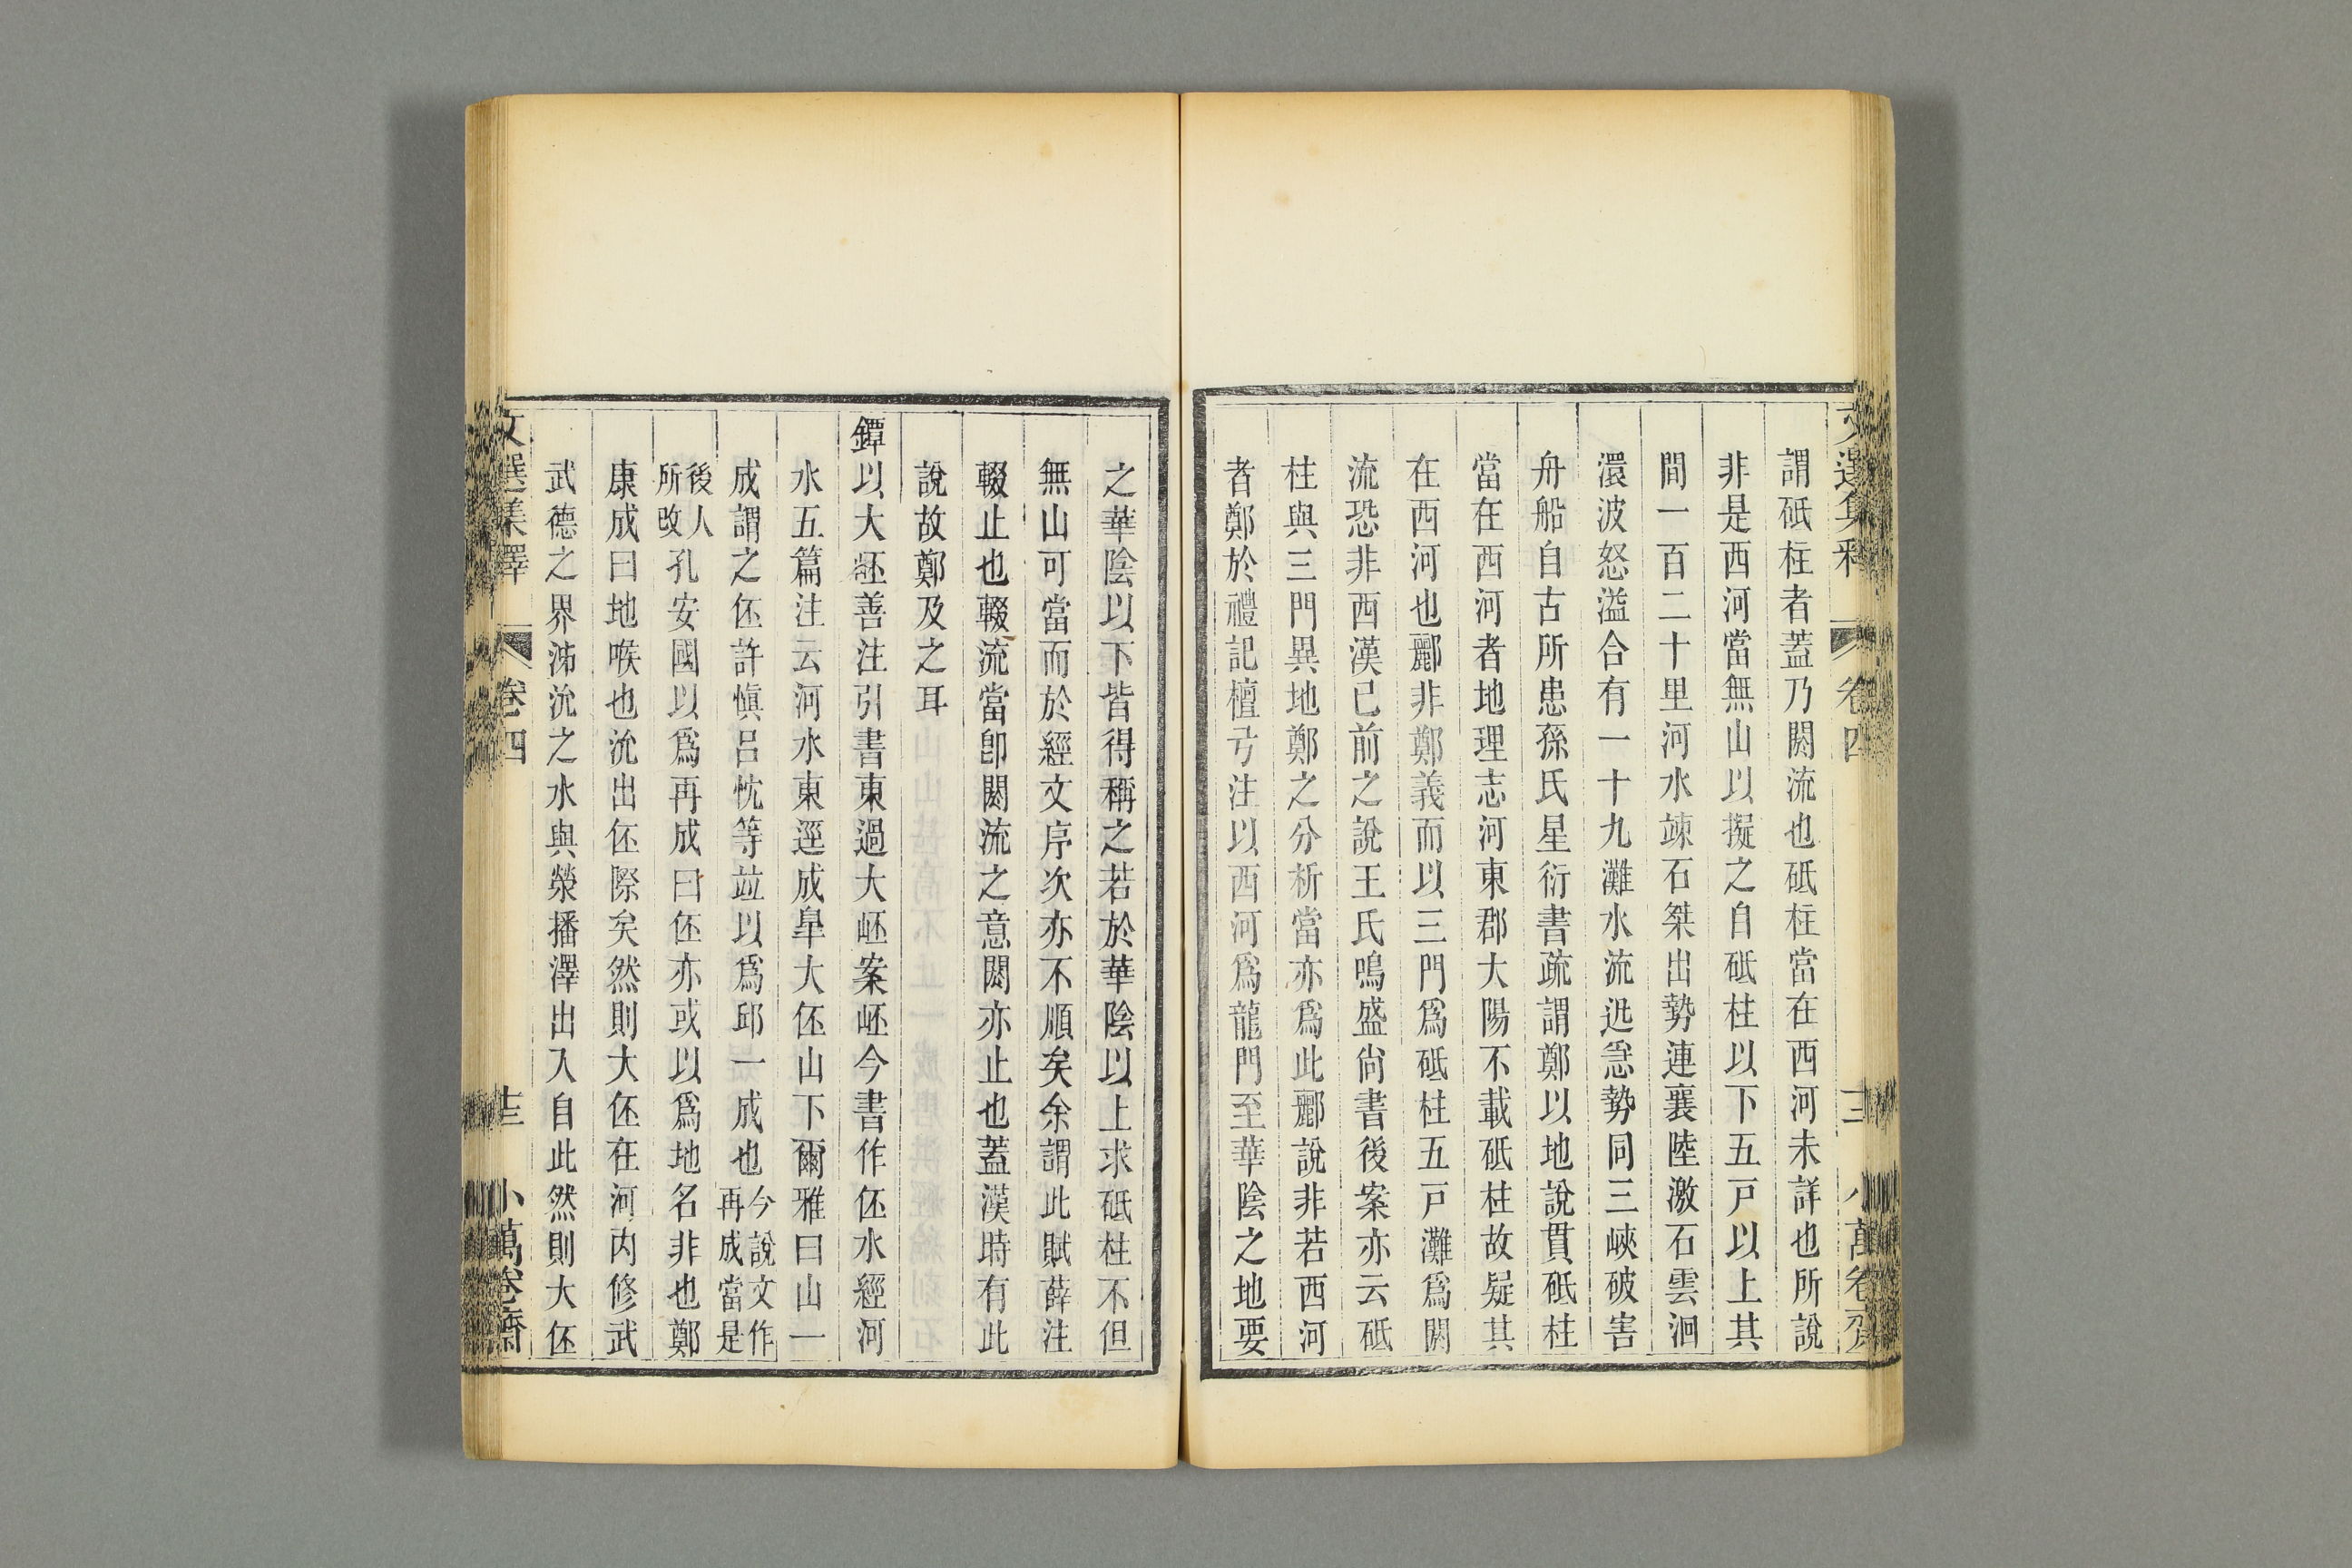 文選集釋 卷四 小萬卷齋
謂砥柱者蓋乃閼流也砥柱當在西河未詳也所說
非是西河當無山以擬之自砥柱以下五戸以上其
間一百二十里河水竦石桀出勢連襄陸激石雲洄
澴波怒溢合有一十九灘水流迅急勢同三峽破害
舟船自古所患孫氏星衍書疏謂鄭以地說貫砥柱
當在西河者地理志河東郡大陽不載砥柱故疑其
在西河也酈非鄭義而以三門爲砥柱五戸灘爲閼
流恐非西漢已前之說王氏鳴盛尙書後案亦云砥
柱與三門異地鄭之分析當亦爲此酈說非若西河
者鄭於禮記檀弓注以西河爲龍門至華陰之地要
之華陰以下皆得稱之若於華陰以上求砥柱不但
無山可當而於經文序次亦不順矣余謂此賦薛注
輟止也輟流當卽閼流之意閼亦止也蓋漢時有此
說故鄭及之耳
鐔以大㔻善注引書東過大岯案岯今書作伾水經河
水五篇注云河水東逕成臯大伾山下爾雅曰山一
成謂之伾許愼呂忱等竝以爲邱一成也今說文作再成當是
後人所改孔安國以爲再成曰伾亦或以爲地名非也鄭
康成曰地喉也沇出伾際矣然則大伾在河內修武
武德之界沛沇之水與滎播澤出入自此然則大伾
文選集釋 卷四 十三 小萬卷齋